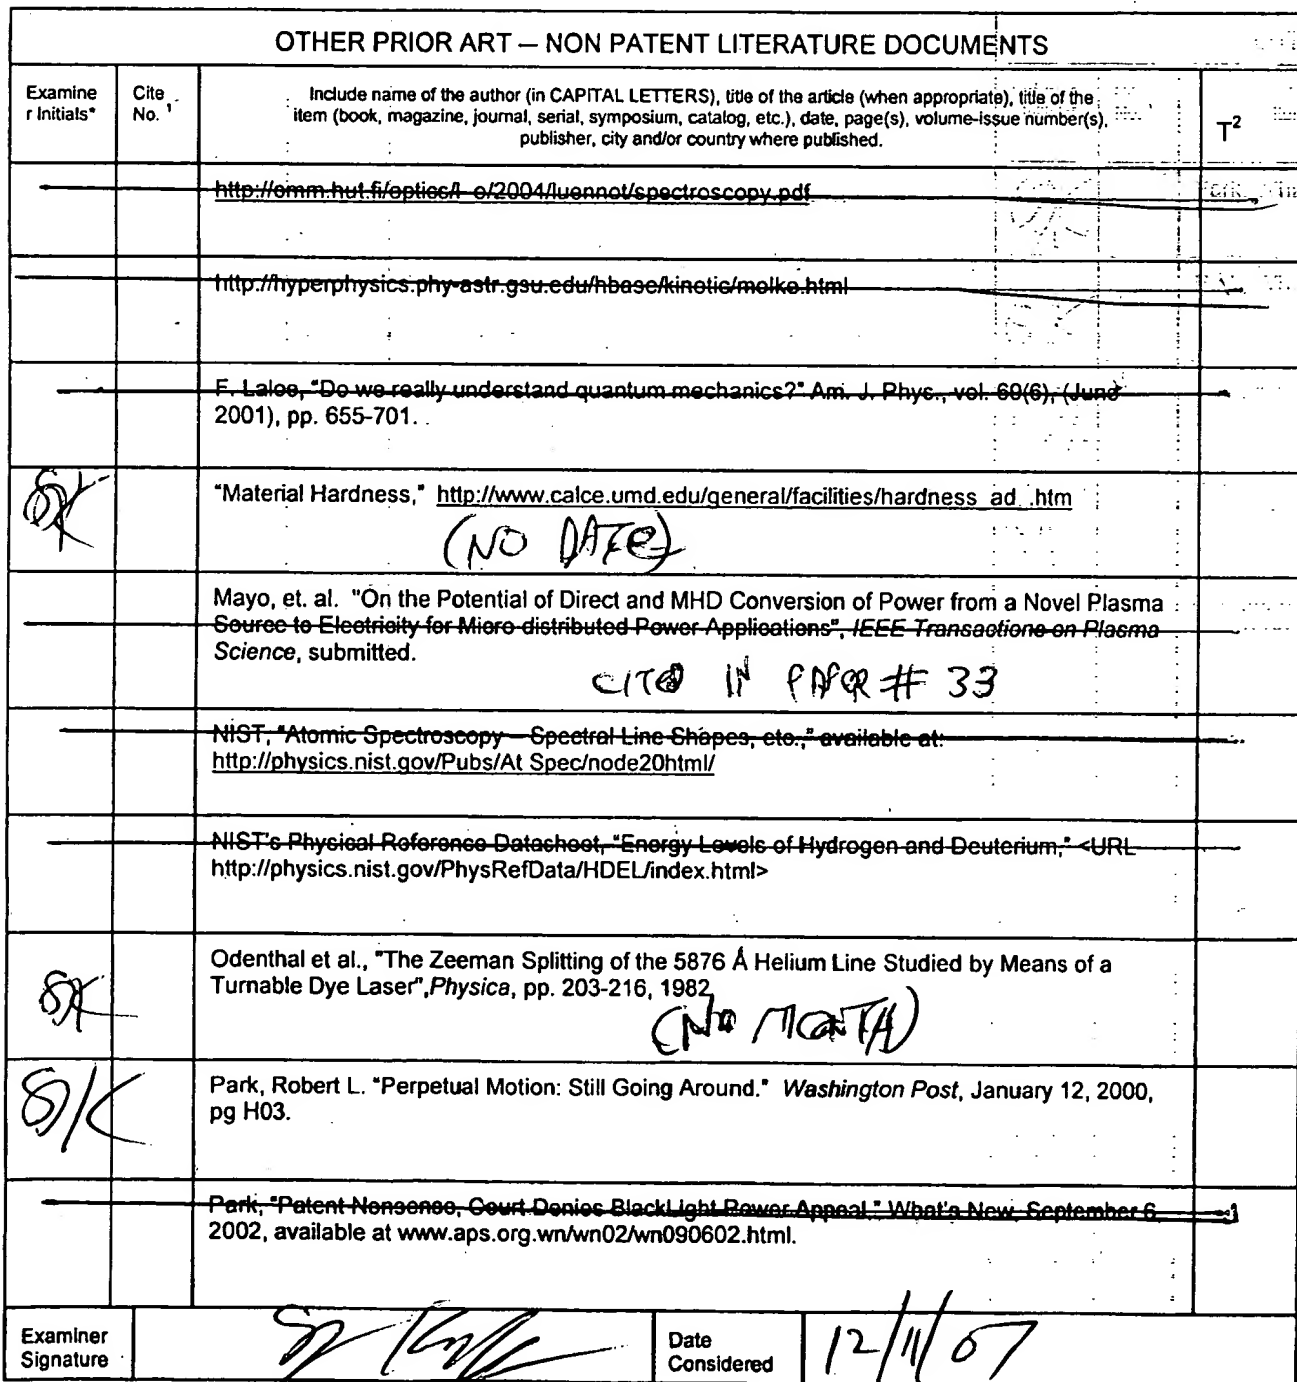 OTHER PRIOR ART – NON PATENT LITERATURE DOCUMENTS
Examine
r Initials*
Cite
No. 1
Include name of the author (in CAPITAL LETTERS), title of the article (when appropriate), title of the
item (book, magazine, journal, serial, symposium, catalog, etc.), date, page(s), volume-issue number(s),
publisher, city and/or country where published.
T2
http://omm.hut.fi/optics/l-o/2004/luennot/spectroscopy.pdf
http://hyperphysics.phy-astr.gsu.edu/hbase/kinetic/molke.html
F. Laloe, "Do we really understand quantum mechanics?" Am. J. Phys., vol. 69(6), (June
2001), pp. 655-701.
SK
"Material Hardness," http://www.calce.umd.edu/general/facilities/hardness_ad_.htm
(NO DATE)
Mayo, et. al. "On the Potential of Direct and MHD Conversion of Power from a Novel Plasma
Source to Electricity for Micro-distributed Power Applications", IEEE Transactions on Plasma
Science, submitted.
CITED IN PAPER # 33
NIST, "Atomic Spectroscopy – Spectral Line Shapes, etc.," available at:
http://physics.nist.gov/Pubs/At Spec/node20html/
NIST's Physical Reference Datasheet, "Energy Levels of Hydrogen and Deuterium," <URL
http://physics.nist.gov/PhysRefData/HDEL/index.html>
SK
Odenthal et al., "The Zeeman Splitting of the 5876 Å Helium Line Studied by Means of a
Turnable Dye Laser", Physica, pp. 203-216, 1982
(NO MONTH)
SK
Park, Robert L. "Perpetual Motion: Still Going Around." Washington Post, January 12, 2000,
pg H03.
Park, "Patent Nonsense, Court Denies BlackLight Power Appeal," What's New, September 6,
2002, available at www.aps.org.wn/wn02/wn090602.html.
Examiner
Signature
Date
Considered
12/11/07